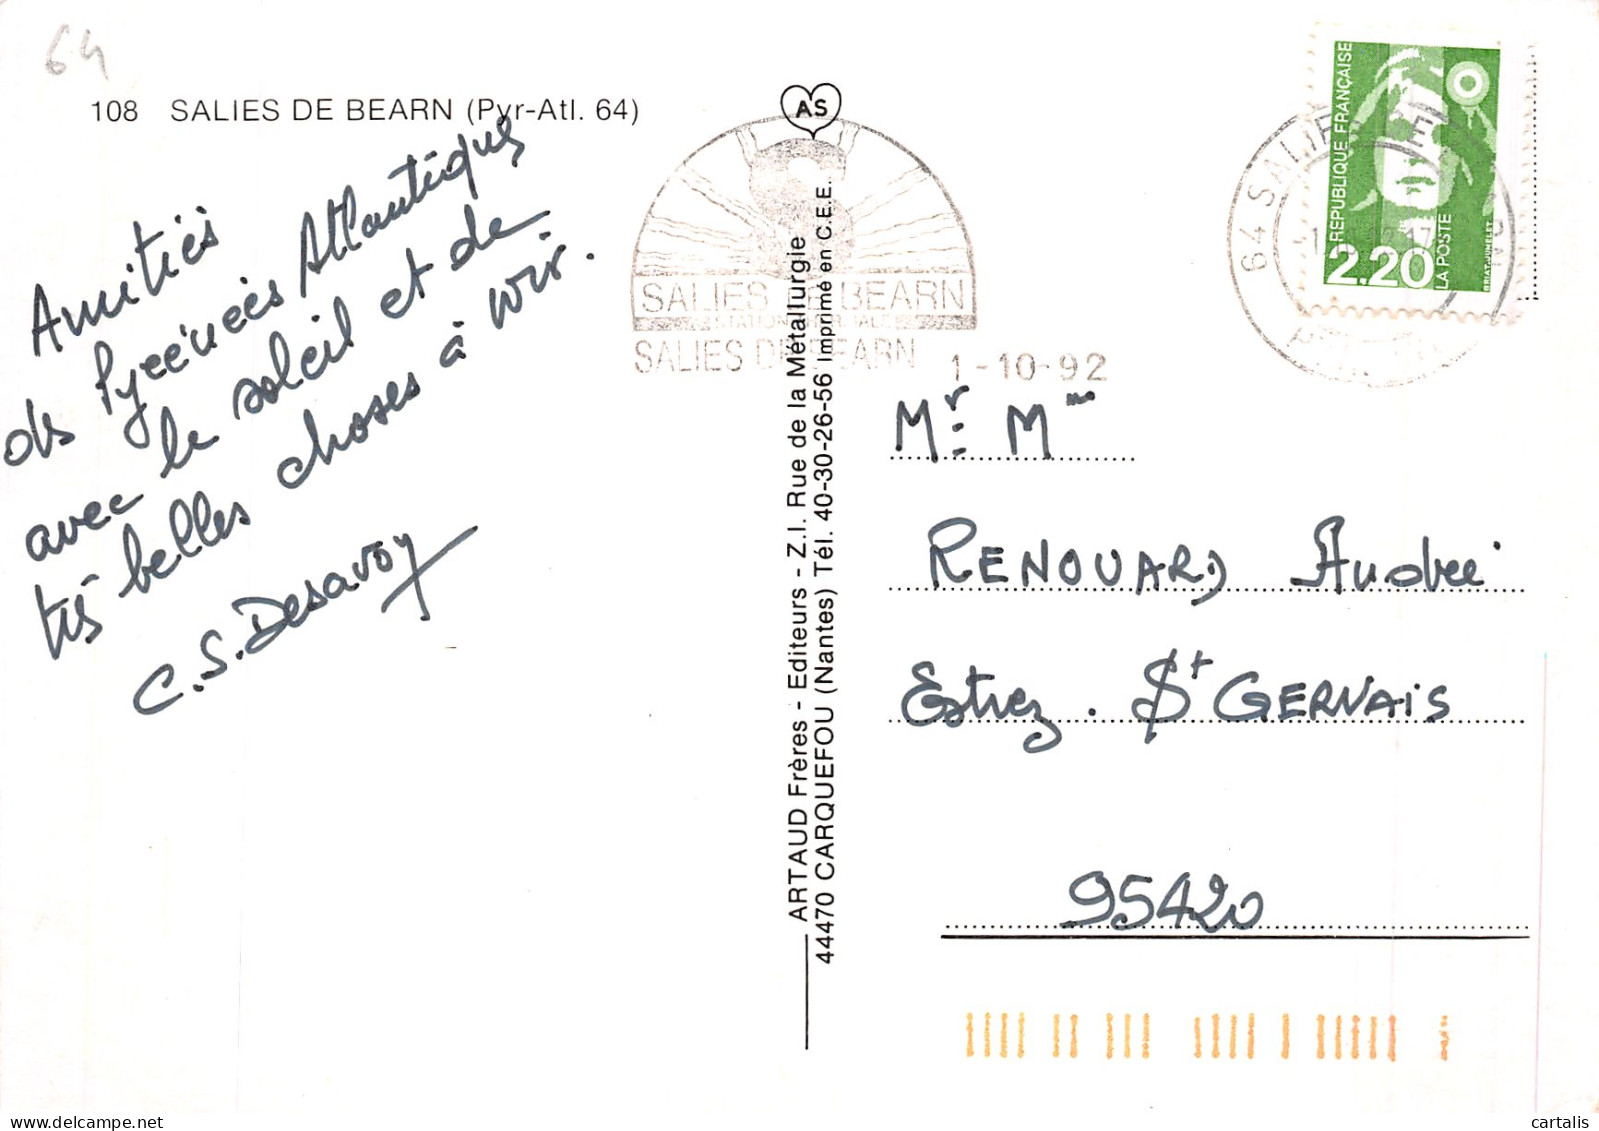 64
108 SALIES DE BEARN (Pyr-Atl. 64)
Amitiés
des Pyrénées Atlantiques
avec le soleil et de
très belles choses à voir.
C.S. Desavoy
AS
SALIES DE BEARN
STATION THERMALE
SALIES DE BEARN
1-10-92
ARTAUD Frères - Editeurs - Z.I. Rue de la Métallurgie
44470 CARQUEFOU (Nantes) Tél. 40-30-26-56 Imprimé en C.E.E.
64 SALIES DE
REPUBLIQUE FRANÇAISE
2.20
LA POSTE
BRIAT.JUMELET
Mr: Mme
RENOUARD Andrée
Estrez. St GERVAIS
95420
cartalis